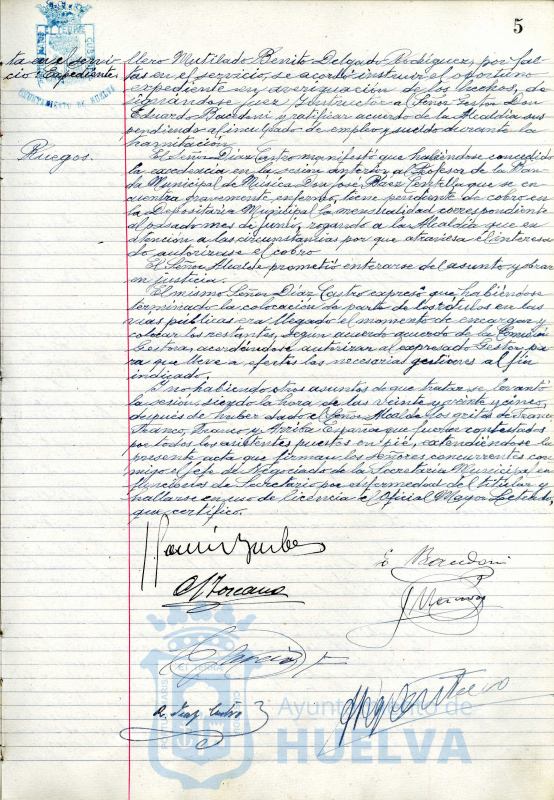 5
AYUNTAMIENTO DE HUELVA
ta en el servi
cio: Expediente.
llero Mutilado Benito Delgado Rodriguez, por fal
tas en el servicio, se acordó instruir el oportuno
expediente en averiguación de los hechos, de
signandose juez instructor al Señor Gestor Don
Eduardo y ratificar acuerdo de la Alcaldia sus
pendiendo al inculpado de empleo y sueldo durante la
tramitación.
Ruegos.
El Señor Diaz Castro manifestó que habiéndose concedido
la excedencia en la sesión anterior al Profesor de la Ban
da Municipal de Música Don José Baez que se en
cuentra gravemente enfermo, tiene pendiente de cobro en
la Depositaria Municipal la mensualidad correspondiente
al pasado mes de junio, rogando a la Alcaldia que en
atención a las circunstancias por que atraviesa el interesa
do autorizase el cobro
El Señor Alcalde prometió enterarse del asunto y obrar
en justicia.
El mismo Señor Diaz Castro expresó que habiéndose
terminado la colocación de parte de los rótulos en las
vias públicas era llegado el momento de encargar y
colocar los restantes, según acuerdo de la Comisión
Gestora, acordándose autorizar al expresado Gestor pa
ra que lleve a efecto las necesarias gestiones al fin
indicado.
Y no habiendo otros asuntos de que tratar se levantó
la sesión siendo la hora de las veinte y veinte y cinco,
después de haber dado el Señor Alcalde los gritos de Franco,
Franco, Franco y Arriba España que fueron contestados
por todos los asistentes puestos en pié, extendiéndose la
presente acta que firman los Señores concurrentes con
migo el Jefe de Negociado de la Secretaria Municipal en
funciones de Secretario por enfermedad del titular y
hallarse en uso de licencia el Oficial Mayor Letrado,
que certifico.
R. Diaz Castro
Ayuntamiento de
HUELVA